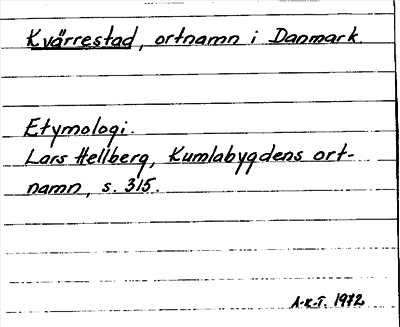 Kvärrestad, ortnamn i Danmark.
Etymologi.
Lars Hellberg, Kumlabygdens ort-
namn, s. 315.
A.K.T. 1972